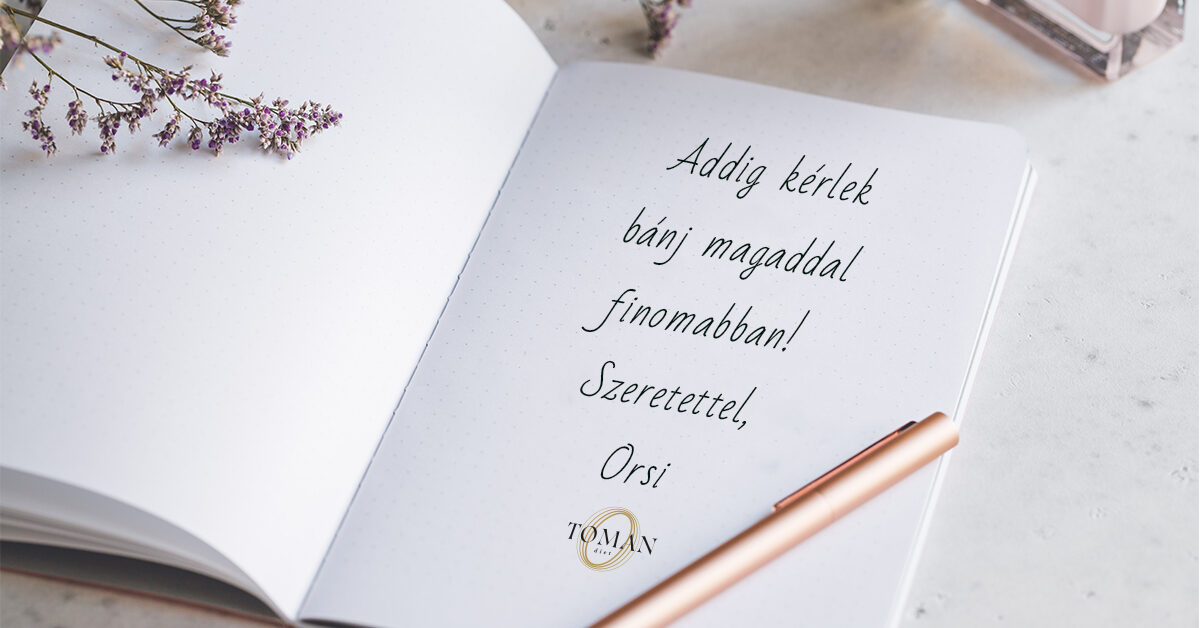 Addig kérlek
bánj magaddal
finomabban!
Szeretettel,
Orsi
TOMAN
diet